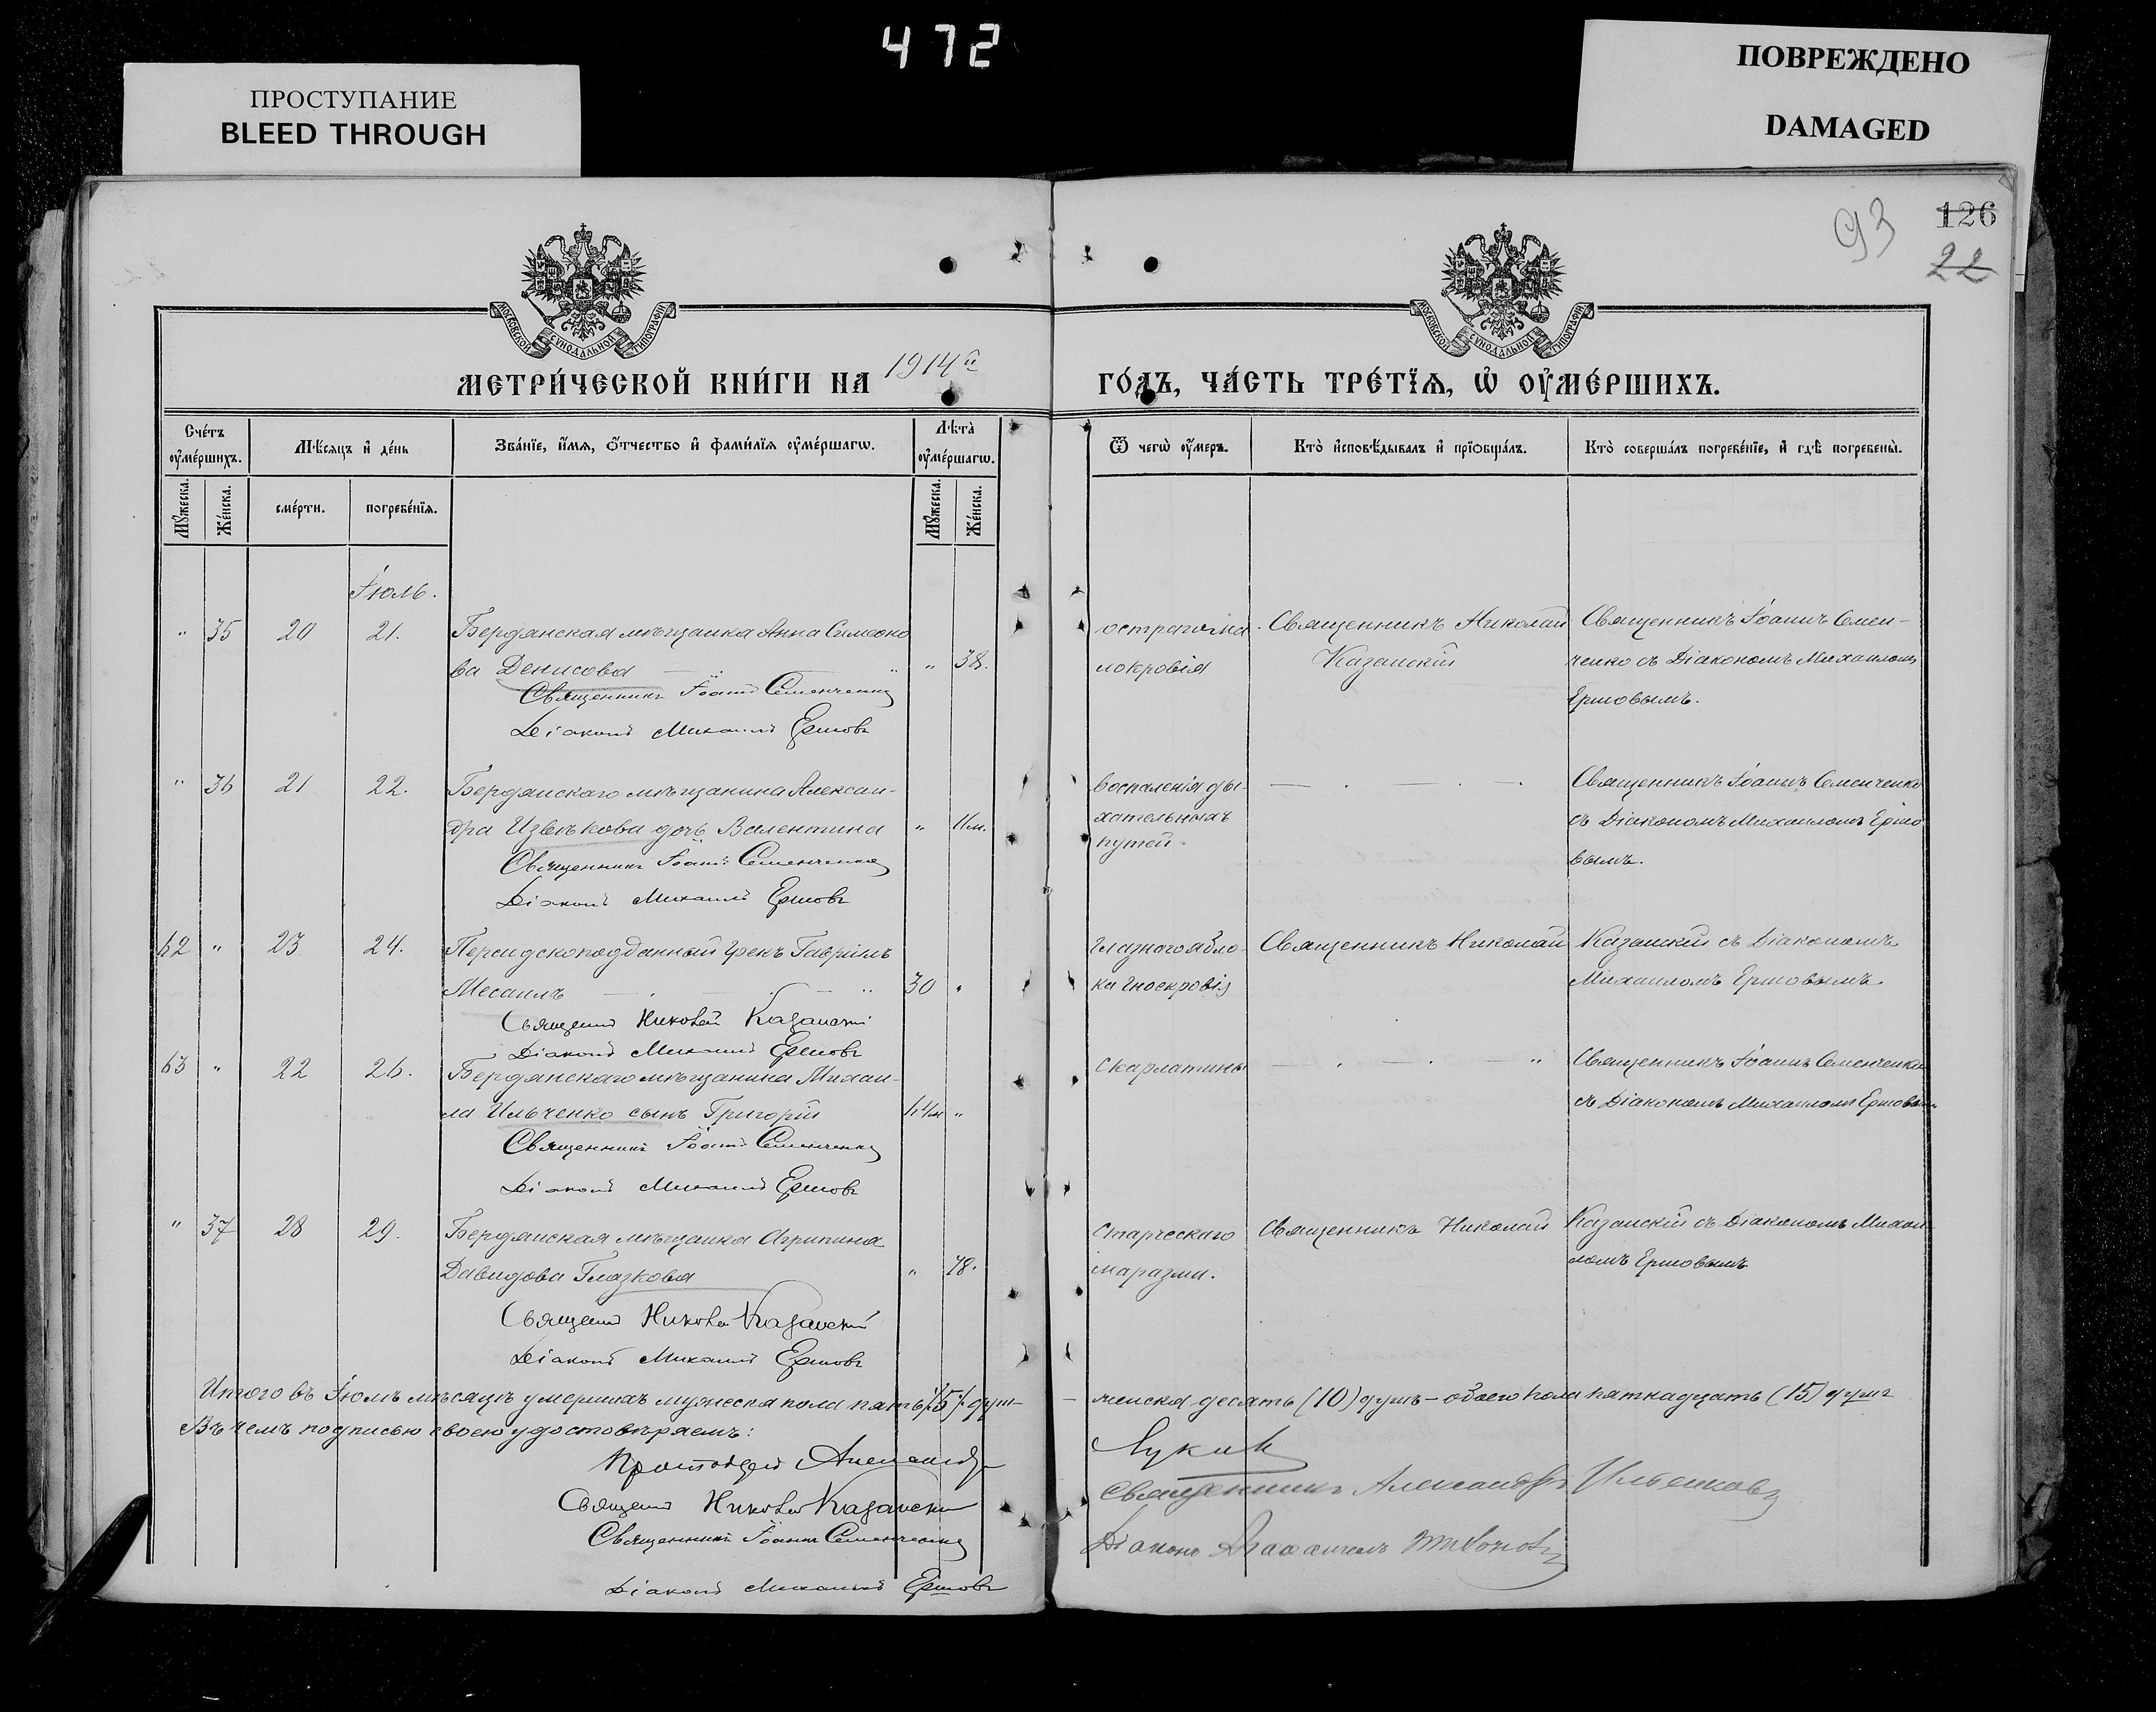 472
ПРОСТУПАНИЕ
BLEED THROUGH
ПОВРЕЖДЕНО
DAMAGED
93
126
22
МОСКОВСКОЙ СѴНОДАЛЬНОЙ ТИПОГРАФІИ
МОСКОВСКОЙ СѴНОДАЛЬНОЙ ТИПОГРАФІИ
МЕТРИ́ЧЕСКОЙ КНИ́ГИ НА 1914й
ГО́ДЪ, ЧА́СТЬ ТРЕ́ТЇѦ, Ѡ҆ ОУ҆МЕ́РШИХЪ.
Сче́тъ оу҆ме́ршихъ.
Мѣ́сяцъ и҆ де́нь
Зва́нїе, и҆́мѧ, ѻ҆́тчество и҆ фами́лїѧ оу҆ме́ршагѡ.
Лѣта̀ оу҆ме́ршагѡ.
Ѿ чегѡ̀ оу҆́меръ.
Кто̀ и҆сповѣ́дывалъ и҆ прїѡбща́лъ.
Кто̀ соверша́лъ погребе́нїе, и҆ гдѣ̀ погребены̀.
Мꙋ́жеска.
Же́нска.
сме́рти.
погребе́нїѧ.
Мꙋ́жеска.
Же́нска.
Іюль.
" 35 20 21. Бердянская мѣщанка Анна Симеоно
ва Денисова " 38.
Священникъ Іоаннъ Семенченко
Діаконъ Михаилъ Ершовъ
остраго ма-
локровія
Священникъ Николай
Казанскій
Священникъ Іоаннъ Семен-
ченко съ Діакономъ Михаиломъ
Ершовымъ.
" 36 21 22. Бердянскаго мѣщанина Алексан-
дра Извѣкова дочь Валентина " 11м.
Священникъ Іоаннъ Семенченко
Діаконъ Михаилъ Ершовъ
воспаленія ды-
хательныхъ
путей.
Священникъ Іоаннъ Семенченко
съ Діакономъ Михаиломъ Ершо
вымъ.
62 " 23 24. Персидскоподданный грекъ Гавріилъ
Месаилъ 30 "
Священникъ Николай Казанскій
Діаконъ Михаилъ Ершовъ
глазного ябло-
ка гноекровія
Священникъ Николай Казанскій съ Діакономъ
Михаиломъ Ершовымъ
63 " 22 26. Бердянскаго мѣщанина Михаи-
ла Ильченко сынъ Григорій "
Священникъ Іоаннъ Семенченко
Діаконъ Михаилъ Ершовъ
скарлатины
Священникъ Іоаннъ Семенченко
съ Діакономъ Михаиломъ Ершовымъ
" 37 28 29. Бердянская мѣщанка Агрипина
Давидова Глазкова " 78.
Священникъ Николай Казанскій
Діаконъ Михаилъ Ершовъ
старческаго
маразма.
Священникъ Николай Казанскій съ Діакономъ Михаи-
ломъ Ершовымъ
Итого въ Іюлѣ мѣсяцѣ умершихъ мужеска пола пять (5) душъ –
женска десять (10) душъ – обоего пола пятнадцать (15) душъ
Въ чемъ подписью своею удостовѣряемъ:
Протоіерей Александръ
Священникъ Николай Казанскій
Священникъ Іоаннъ Семенченко
Діаконъ Михаилъ Ершовъ
Священникъ Александръ
Діаконъ